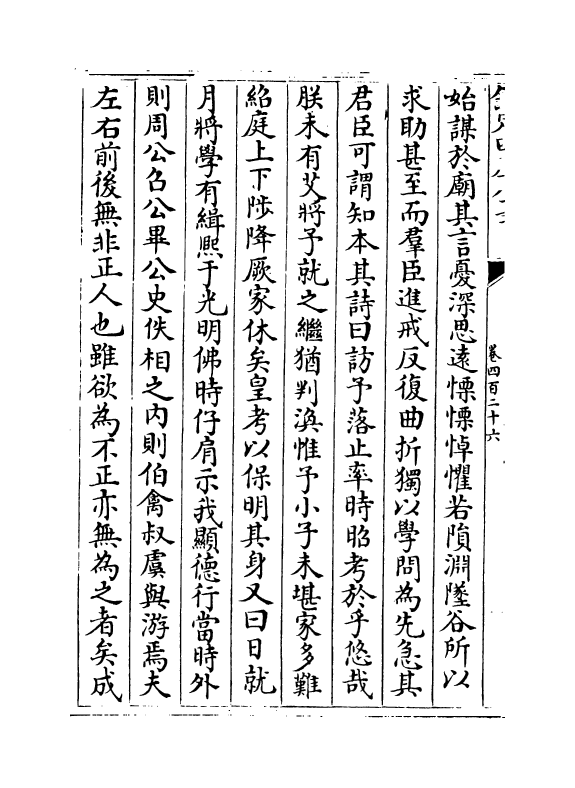 卷四百二十六
始謀於廟其言憂深思遠慄慄悼懼若隕淵墜谷所以
求助甚至而羣臣進戒反復曲折獨以學問為先急其
君臣可謂知本其詩曰訪予落止率時昭考於乎悠哉
朕未有艾將予就之繼猶判渙惟予小子未堪家多難
紹庭上下陟降厥家休矣皇考以保明其身又曰日就
月將學有緝熙于光明佛時仔肩示我顯德行當時外
則周公召公畢公史佚相之内則伯禽叔虞與游焉夫
左右前後無非正人也雖欲為不正亦無為之者矣成